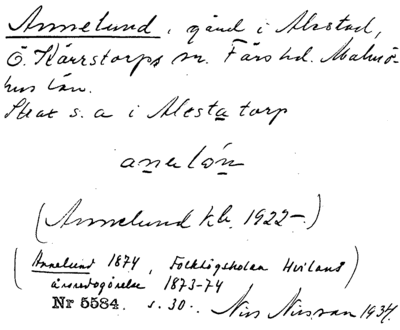 Annelund, gård i Alestad,
Ö. Kärrstorps sn. Färs hd. Malmö-
hus län.
Strax s. a i Alestatorp
anelón
(Annelund kb. 1922–)
(Annelund 1874, Folkhögskolan Hvilans)
årsredogörelse 1873-74
Nr 5584. s. 30. Nils Nilsson 1934.